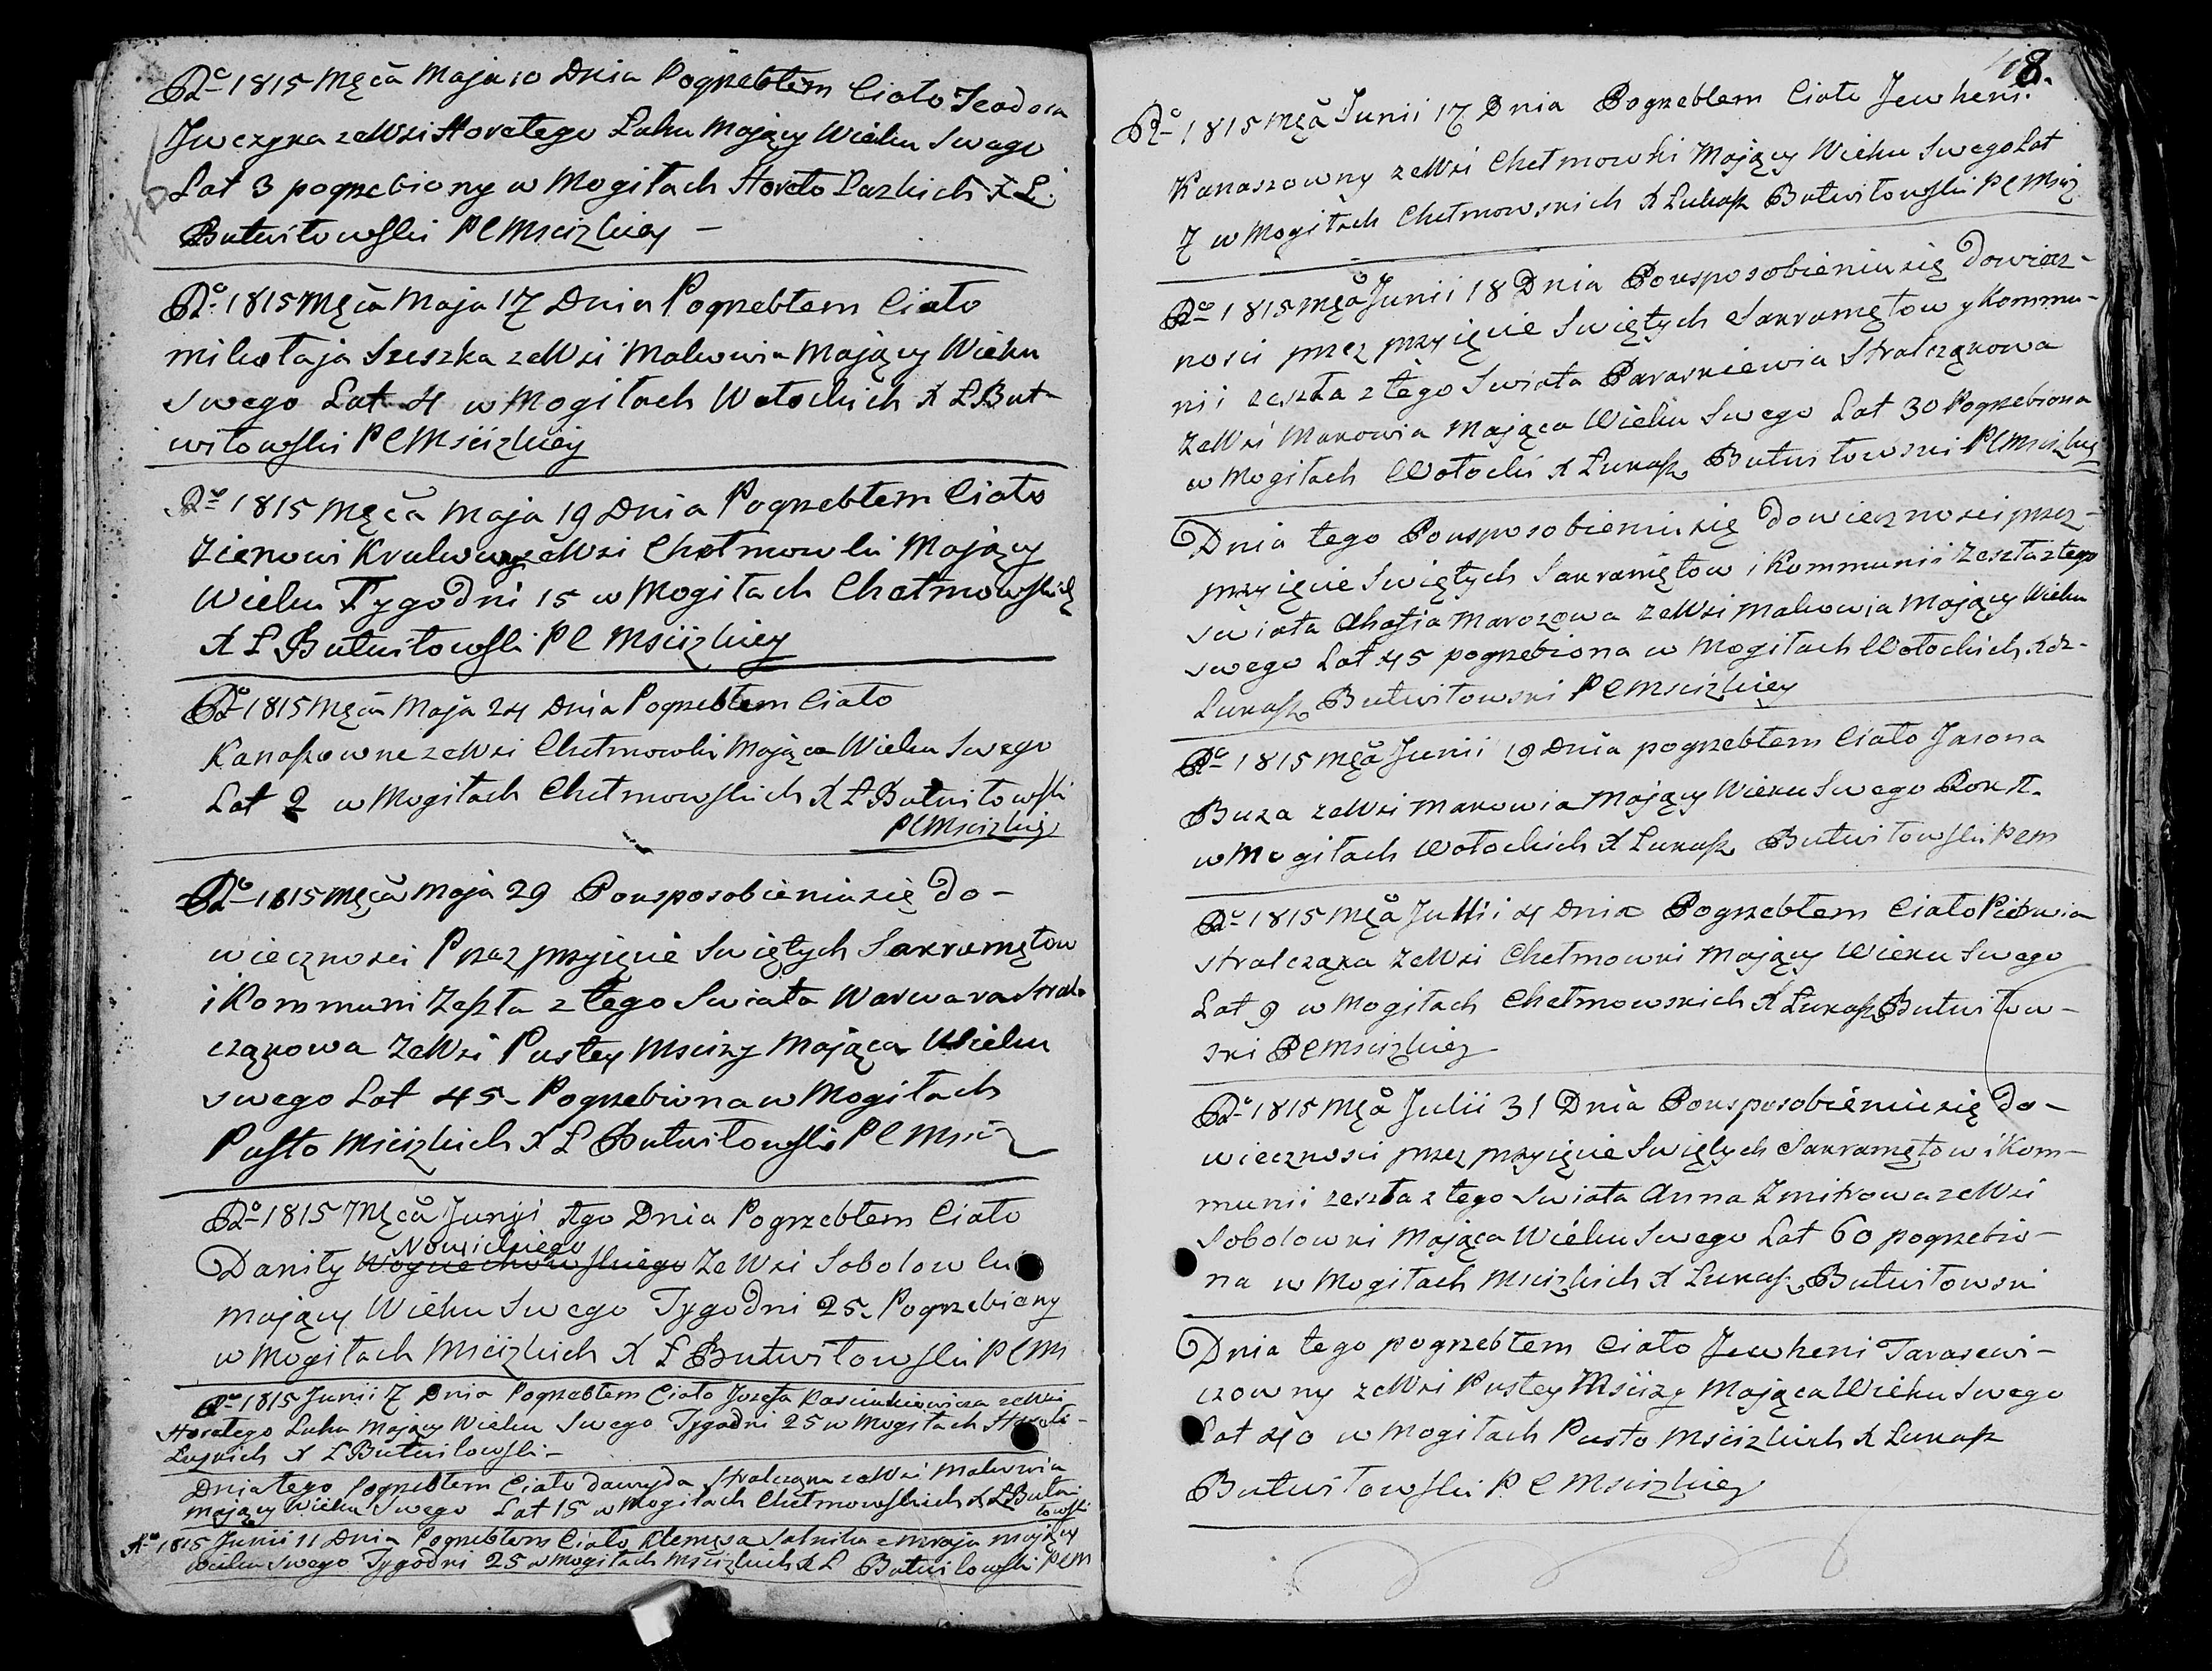 Ro 1815 Męca Maja 10 Dnia Pogrzebłem Ciało Teodora
Iwczyka ze Wsi Horełego Łuhu Mający Wieku Swego
Lat 3 pogrzebiony w Mogiłach Horeło Łazkich X Ł
Butwiłowski P C Msciżkiey –
Ro 1815 Męca Maja 17 Dnia Pogrzebłem Ciało
Mikołaja Szeszka ze Wsi Makowia Mający Wieku
Swego Lat 4 w Mogiłach Wołockich X Ł But-
wiłowski P C Msciżkiey
Ro 1815 Męca Maja 19 Dnia Pogrzebłem Ciało
Zienowi ze Wsi Chełmowki Mający
Wieku Tygodni 15 w Mogiłach Chełmowskich
X Ł Butwiłowski P C Msciżkiey
Ro 1815 Męca Maja 24 Dnia Pogrzebłem Ciało
Kanaszowne ze Wsi Chełmowki Mająca Wieku Swego
Lat 2 w Mogiłach Chełmowskich X Ł Butwiłowski
P C Msciżkiey
Ro 1815 Męca Maja 29 Pousposobieniu się Do-
wiecznosci Przez przyięcie Swiętych Sakramętow
i Kommuni Zeszła z tego Swiata Warwara Stral-
cząkowa Ze Wsi Pustey Mscizy Mająca Wieku
swego Lat 45 - Pogrzebiona w Mogiłach
Pusto Msciżkich X Ł Butwiłowski P C Msciż
Ro 1815 Męca Junii 1go Dnia Pogrzebłem Ciało
Nowickiego
Daniły Woyciechowskiego Ze Wsi Sobolowki
Mający Wieku Swego Tygodni 25 Pogrzebiony
w Mogiłach Msciżkich X Ł Butwiłowski P C Ms
Ro 1815 Junii 7 Dnia Pogrzebłem Ciało Jozefa ze Wsi
Horełego Łuhu Mający Wieku Swego Tygodni 25 w Mogiłach
X Ł Butwiłowski –
Dnia tego Pogrzebłem Ciało Dawyda Stralcząka ze Wsi Makowia
mający Wieku Swego Lat 15 w Mogiłach Chełmowskich X Ł Butwi
łowski
Ro 1815 Junii 11 Dnia Pogrzebłem Ciało Klemęsa Salnika z mający
Wieku Swego Tygodni 25 w Mogiłach Msciżkich X Ł Butwiłowski P C M
8.
Ro 1815 Męa Junii 17 Dnia Pogrzebłem Ciało Jewheni
Kanaszowny ze Wsi Chełmowki Mający Wieku Swego Lat
7 w Mogiłach Chełmowskich X Łukasz Butwiłowski P C Msciż
Ro 1815 Męa Junii 18 Dnia Pousposobieniu się Dowiecz-
nosci przez przyięcie Swiętych Sakramętow y Kommu-
nii zeszła z tego Swiata Paraskiewia Stralcząkowa
ze Wsi Makowia Mająca Wieku Swego Lat 30 Pogrzebiona
w Mogiłach Wołocki X Łukasz Butwiłowski P C Msciżkiey
Dnia tego Pousposobieniu się Dowiecznosci przez-
przyięcie Swiętych Sakramętow i Kommunii Zeszła z tego
swiata Ahafia Marozowa ze Wsi Makowia Mający Wieku
swego Lat 45 pogrzebiona w Mogiłach Wołockich Xdz-
Łukasz Butwiłowski P C Msciżkiey
Ro 1815 Męa Junii 19 Dnia pogrzebłem Ciało Jasona
Buza ze Wsi Makowia Mający Wieku Swego Rok 1.
w Mogiłach Wołockich X Łukasz Butwiłowski P C M
Ro 1815 Męa Julii 4 Dnia Pogrzebłem Ciało
Stralcząka ze Wsi Chełmowki Mający Wieku Swego
Lat 9 w Mogiłach Chełmowskich X Łukasz Butwiłow-
ski P C Msciżkiey
Ro 1815 Męa Julii 31 Dnia Pousposobieniu się Do-
wiecznosci przez przyięcie Swiętych Sakramętow i Kom-
munii zeszła z tego Swiata Anna Zmitrowa ze Wsi
Sobolowki Mająca Wieku Swego Lat 60 pogrzebio-
na w Mogiłach Msciżkich X Łukasz Butwiłowski
Dnia tego pogrzebłem Ciało Jewheni Tarasewi-
czowny ze Wsi Pustey Mscizy Mająca Wieku Swego
Lat 40 w Mogiłach Pusto Msciżkich X Łukasz
Butwiłowski P C Msciżkiey